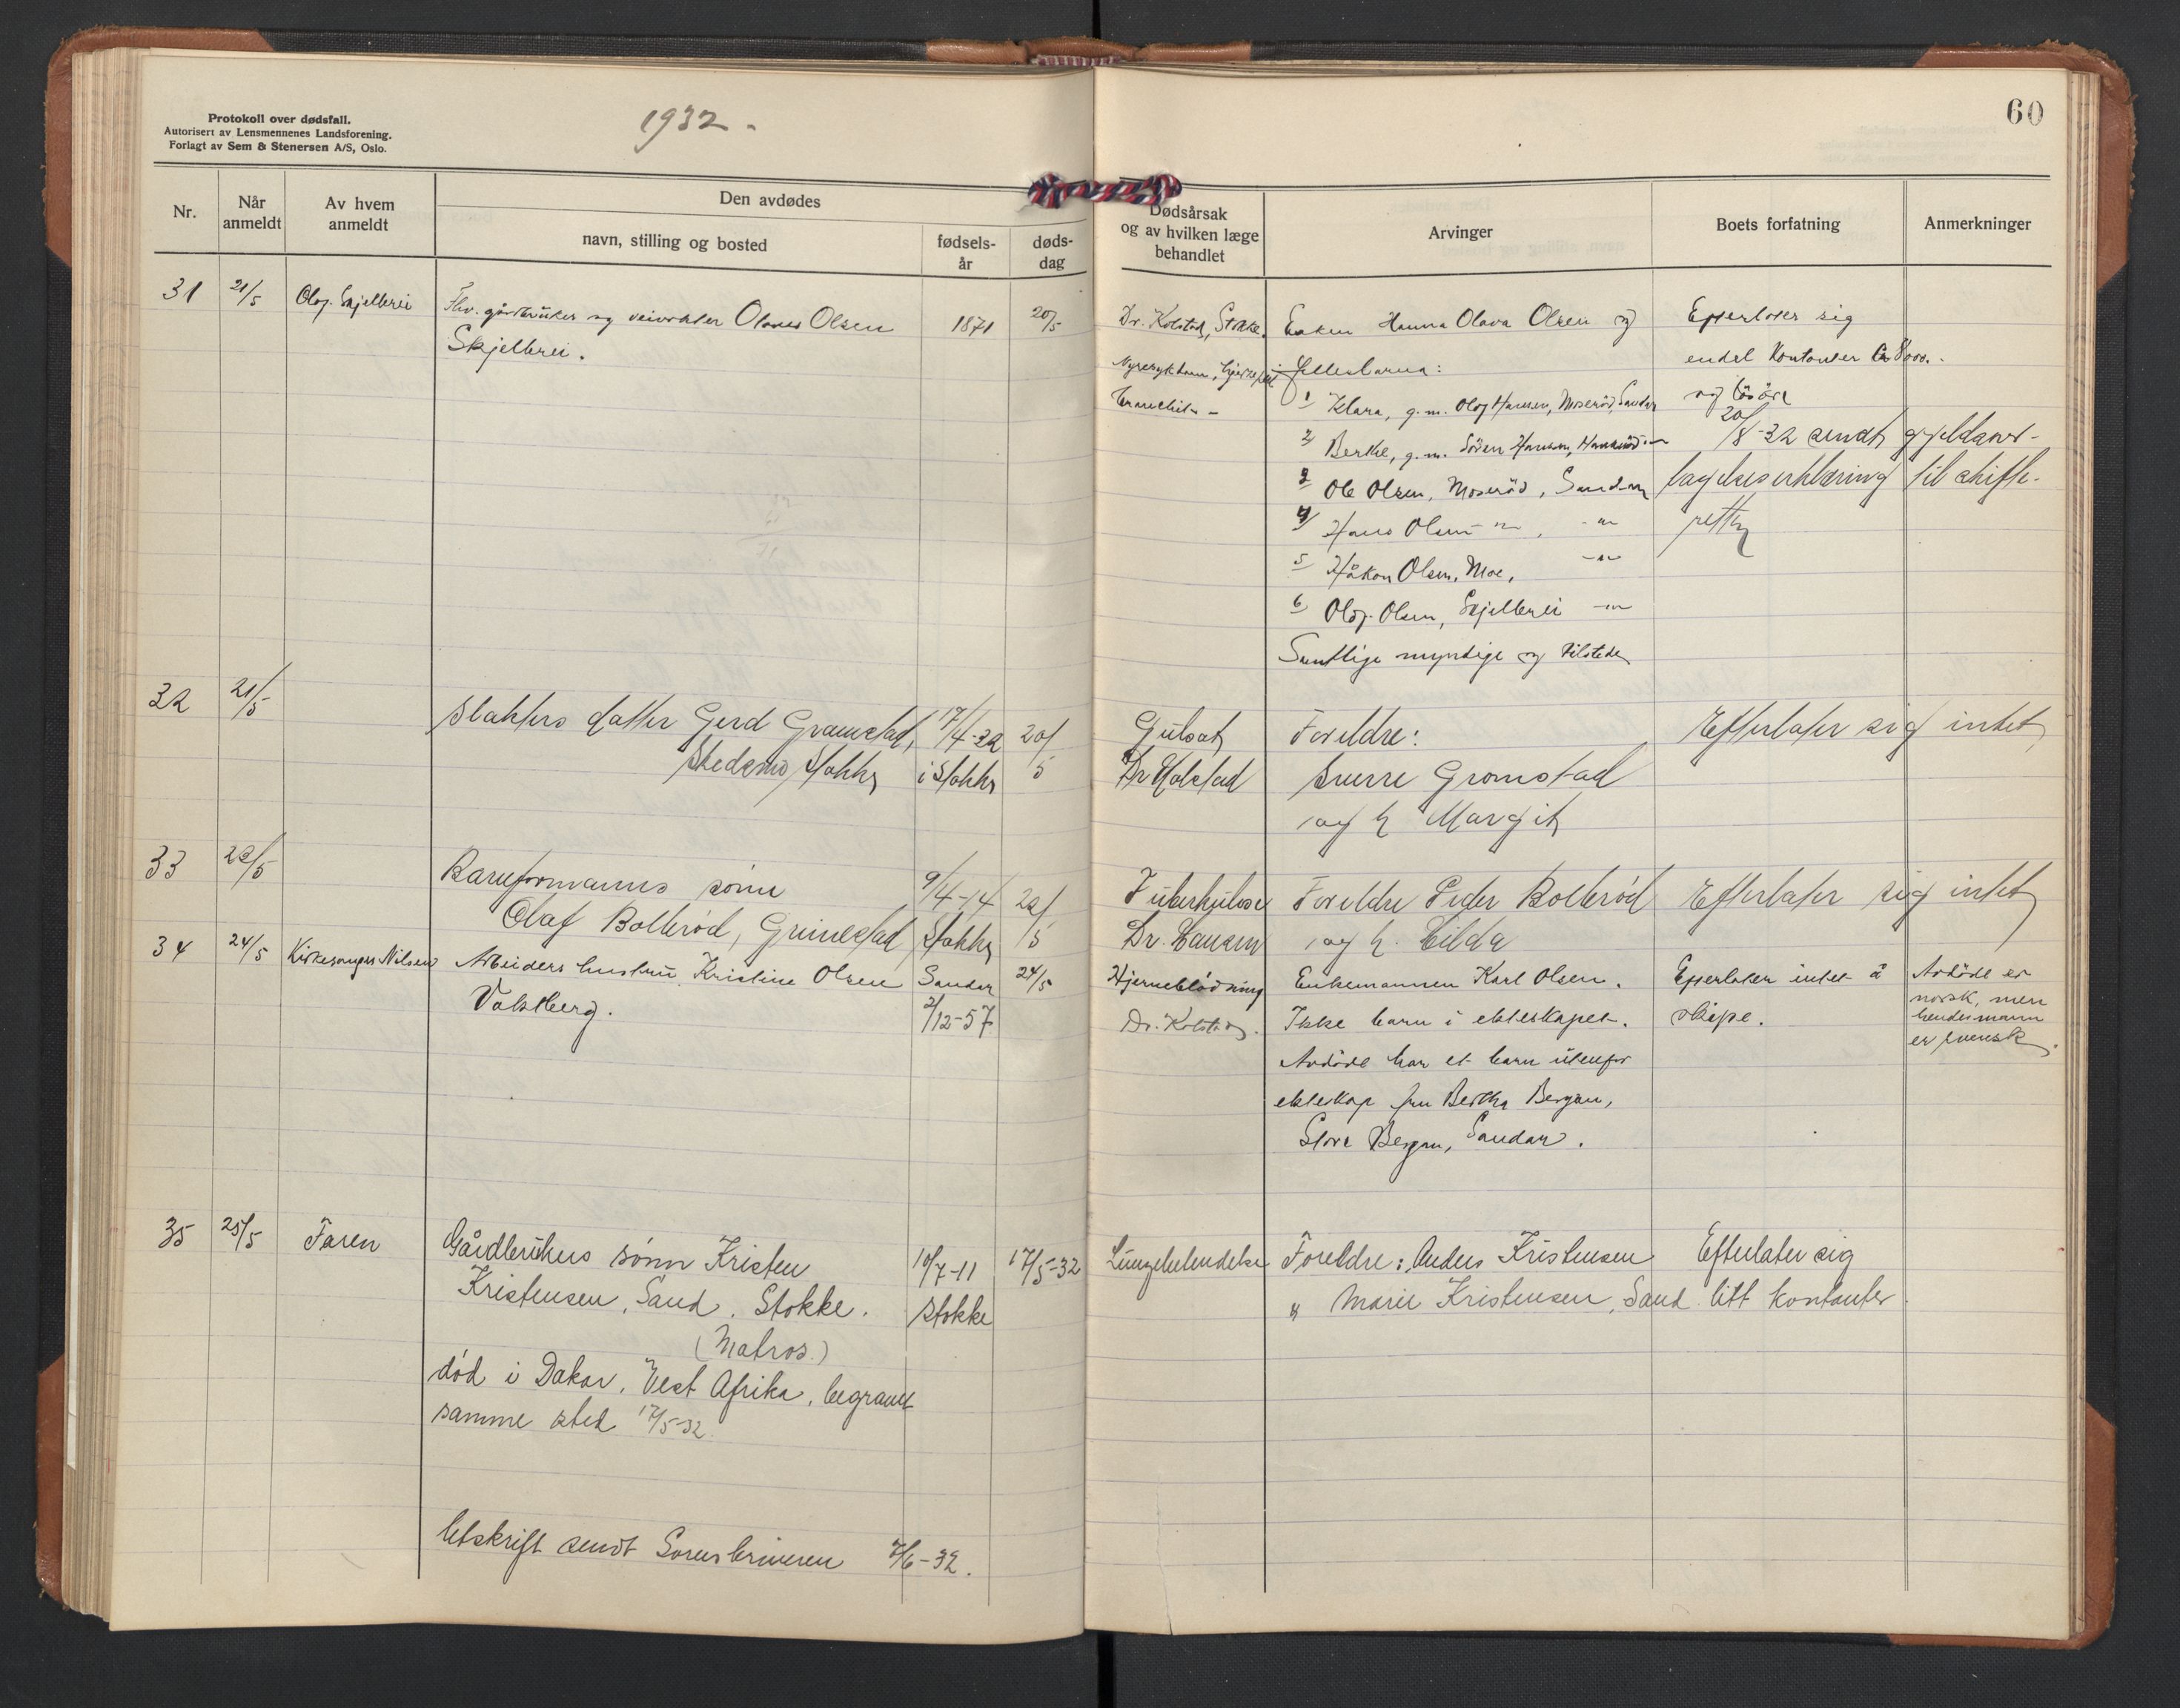 Protokoll over dødsfall.
Autorisert av Lensmennenes Landsforening.
Forlagt av Sem & Stenersen A/S, Oslo.
1932 -
60
Nr.
Når anmeldt
Av hvem anmeldt
Den avdødes
navn, stilling og bosted
fødsels-år
døds-dag
Dødsårsak og av hvilken læge behandlet
Arvinger
Boets forfatning
Anmerkninger
31 21/5 Olaf Skjellbrei
Fhv. gårdbruker og veivokter Olaves Olsen 1871 20/5
Skjelbrei.
Dr. Kolstad, Stokke.
Nyresykdom, hjertefeil
bronchit -
Enken Hanna Olava Olsen og
fellesbarna:
1 Klara, g. m. Olaf Hansen, Moserød, Sandar
2 Berthe, g. m. Søren Hansen,
3 Ole Olsen, Moserød, Sandar
4 Hans Olsen - " - , - " -
5 Håkon Olsen, Moe, - " -
6 Olaf Olsen, Skjellbrei - " -
Samtlige myndige og tilstede
Efterlater sig
endel kontanter kr 8000.-
og løsøre
20/8-32 sendt gjeldsover-
tagelseserklæring til skifte-
rett
32 21/5
Slakters datter Gerd Gramstad, 17/4-32 20/5
Skedsmo, Stokke i Stokke
Gulsot
Dr Kolstad
Foreldre:
Sverre Gromstad
og h Margit
Efterlater sig intet
33 22/5
Baneformanns sønn 9/4-14 22/5
Olaf Bollerød, Grimestad Stokke
Tuberkulose
Dr. Hansen
Foreldre Peder Bollerød
og h. Hilda
Efterlater sig intet
34 24/5 Kirkesanger Nilsen
Arbeiders hustru Kristine Olsen Sandar 24/5
Valberg. 2/12-57
Hjerneblødning
Dr. Kolstad.
Enkemannen Karl Olsen.
Ikke barn i ekteskapet.
Avdøde har et barn utenfor
ekteskap fru Bertha Bergan,
Store Bergan, Sandar.
Efterlater intet å
skifte.
Avdøde er
norsk, men
hendes mann
er svensk.
35 25/5 Faren
Gårdbrukers sønn Kristen 10/7-11 17/5-32
Kristensen, Sand, Stokke. Stokke
(Matros.)
død i Dakar, Vest Afrika, begravet
samme sted 17/5-32.
Lungebetendelse
Foreldre: Anders Kristensen
" Marie Kristensen, Sand
Efterlater sig
litt kontanter
Utskrift sendt Sorenskriveren 7/6-32.